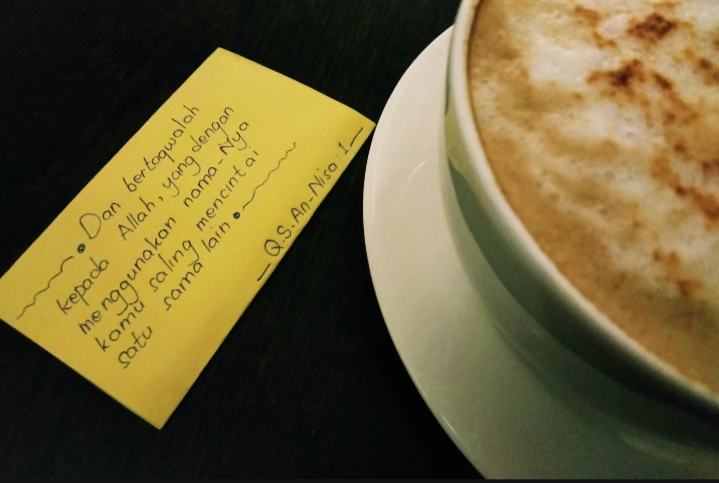 Dan bertaqwalah
kepada Allah, yang dengan
menggunakan nama-Nya
kamu saling mencintai
satu sama lain
— Q.S. An-Nisa: 1 —